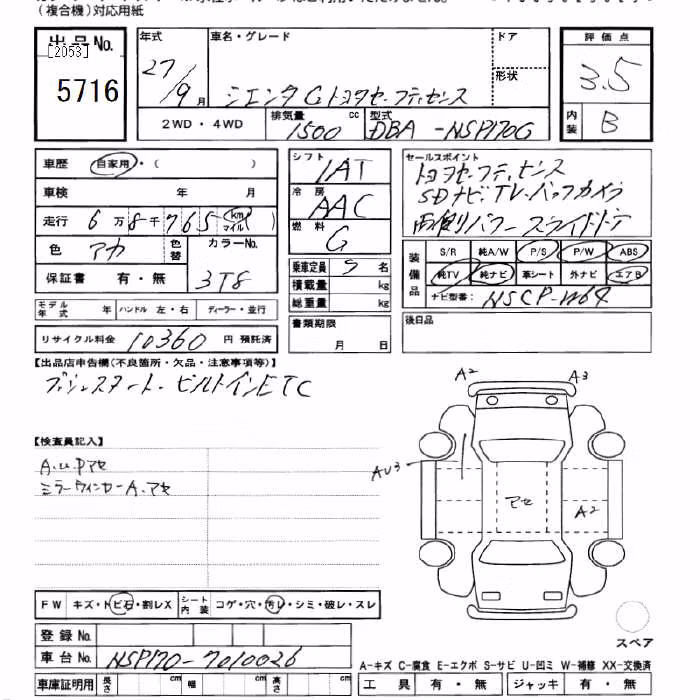 (複合機)対応用紙
出品No.
[2053]
5716
年式
27/9月
車名・グレード
シエンタGトヨタセーフティセンス
ドア
形状
評価点
3.5
内装
B
2WD・4WD
排気量
1500 cc
型式
DBA-NSP170G
車歴 自家用・( )
車検 年 月
走行 6万8千765 km マイル
色 アカ 色替 カラーNo.
保証書 有・無 3T8
モデル年式 年 ハンドル 左・右 ディーラー・並行
リサイクル料金 10360 円 預託済
シフト
1AT
冷房
AAC
燃料
G
乗車定員 5名
積載量 kg
総重量 kg
書類期限
月 日
セールスポイント
トヨタセーフティセンス
SDナビTV・バックカメラ
両側パワースライドドア
装備品
S/R 純A/W P/S P/W ABS
純TV 純ナビ 革シート 外ナビ エアB
ナビ型番: NSCP-W64
後日品
【出品店申告欄(不良箇所・欠品・注意事項等)】
プッシュスタート・ビルトインETC
【検査員記入】
A.U.Pアセ
ミラーウィンカーA.アセ
A2
A3
AU3
アセ
A2
スペア
FW キズ・トビ石・割レX シート内装 コゲ・穴・汚レ・シミ・破レ・スレ
登録No.
車台No. NSP170-7010026
A-キズ C-腐食 E-エクボ S-サビ U-凹ミ W-補修 XX-交換済
車庫証明用 長さ cm 幅 cm 高さ cm
工具 有・無 ジャッキ 有・無